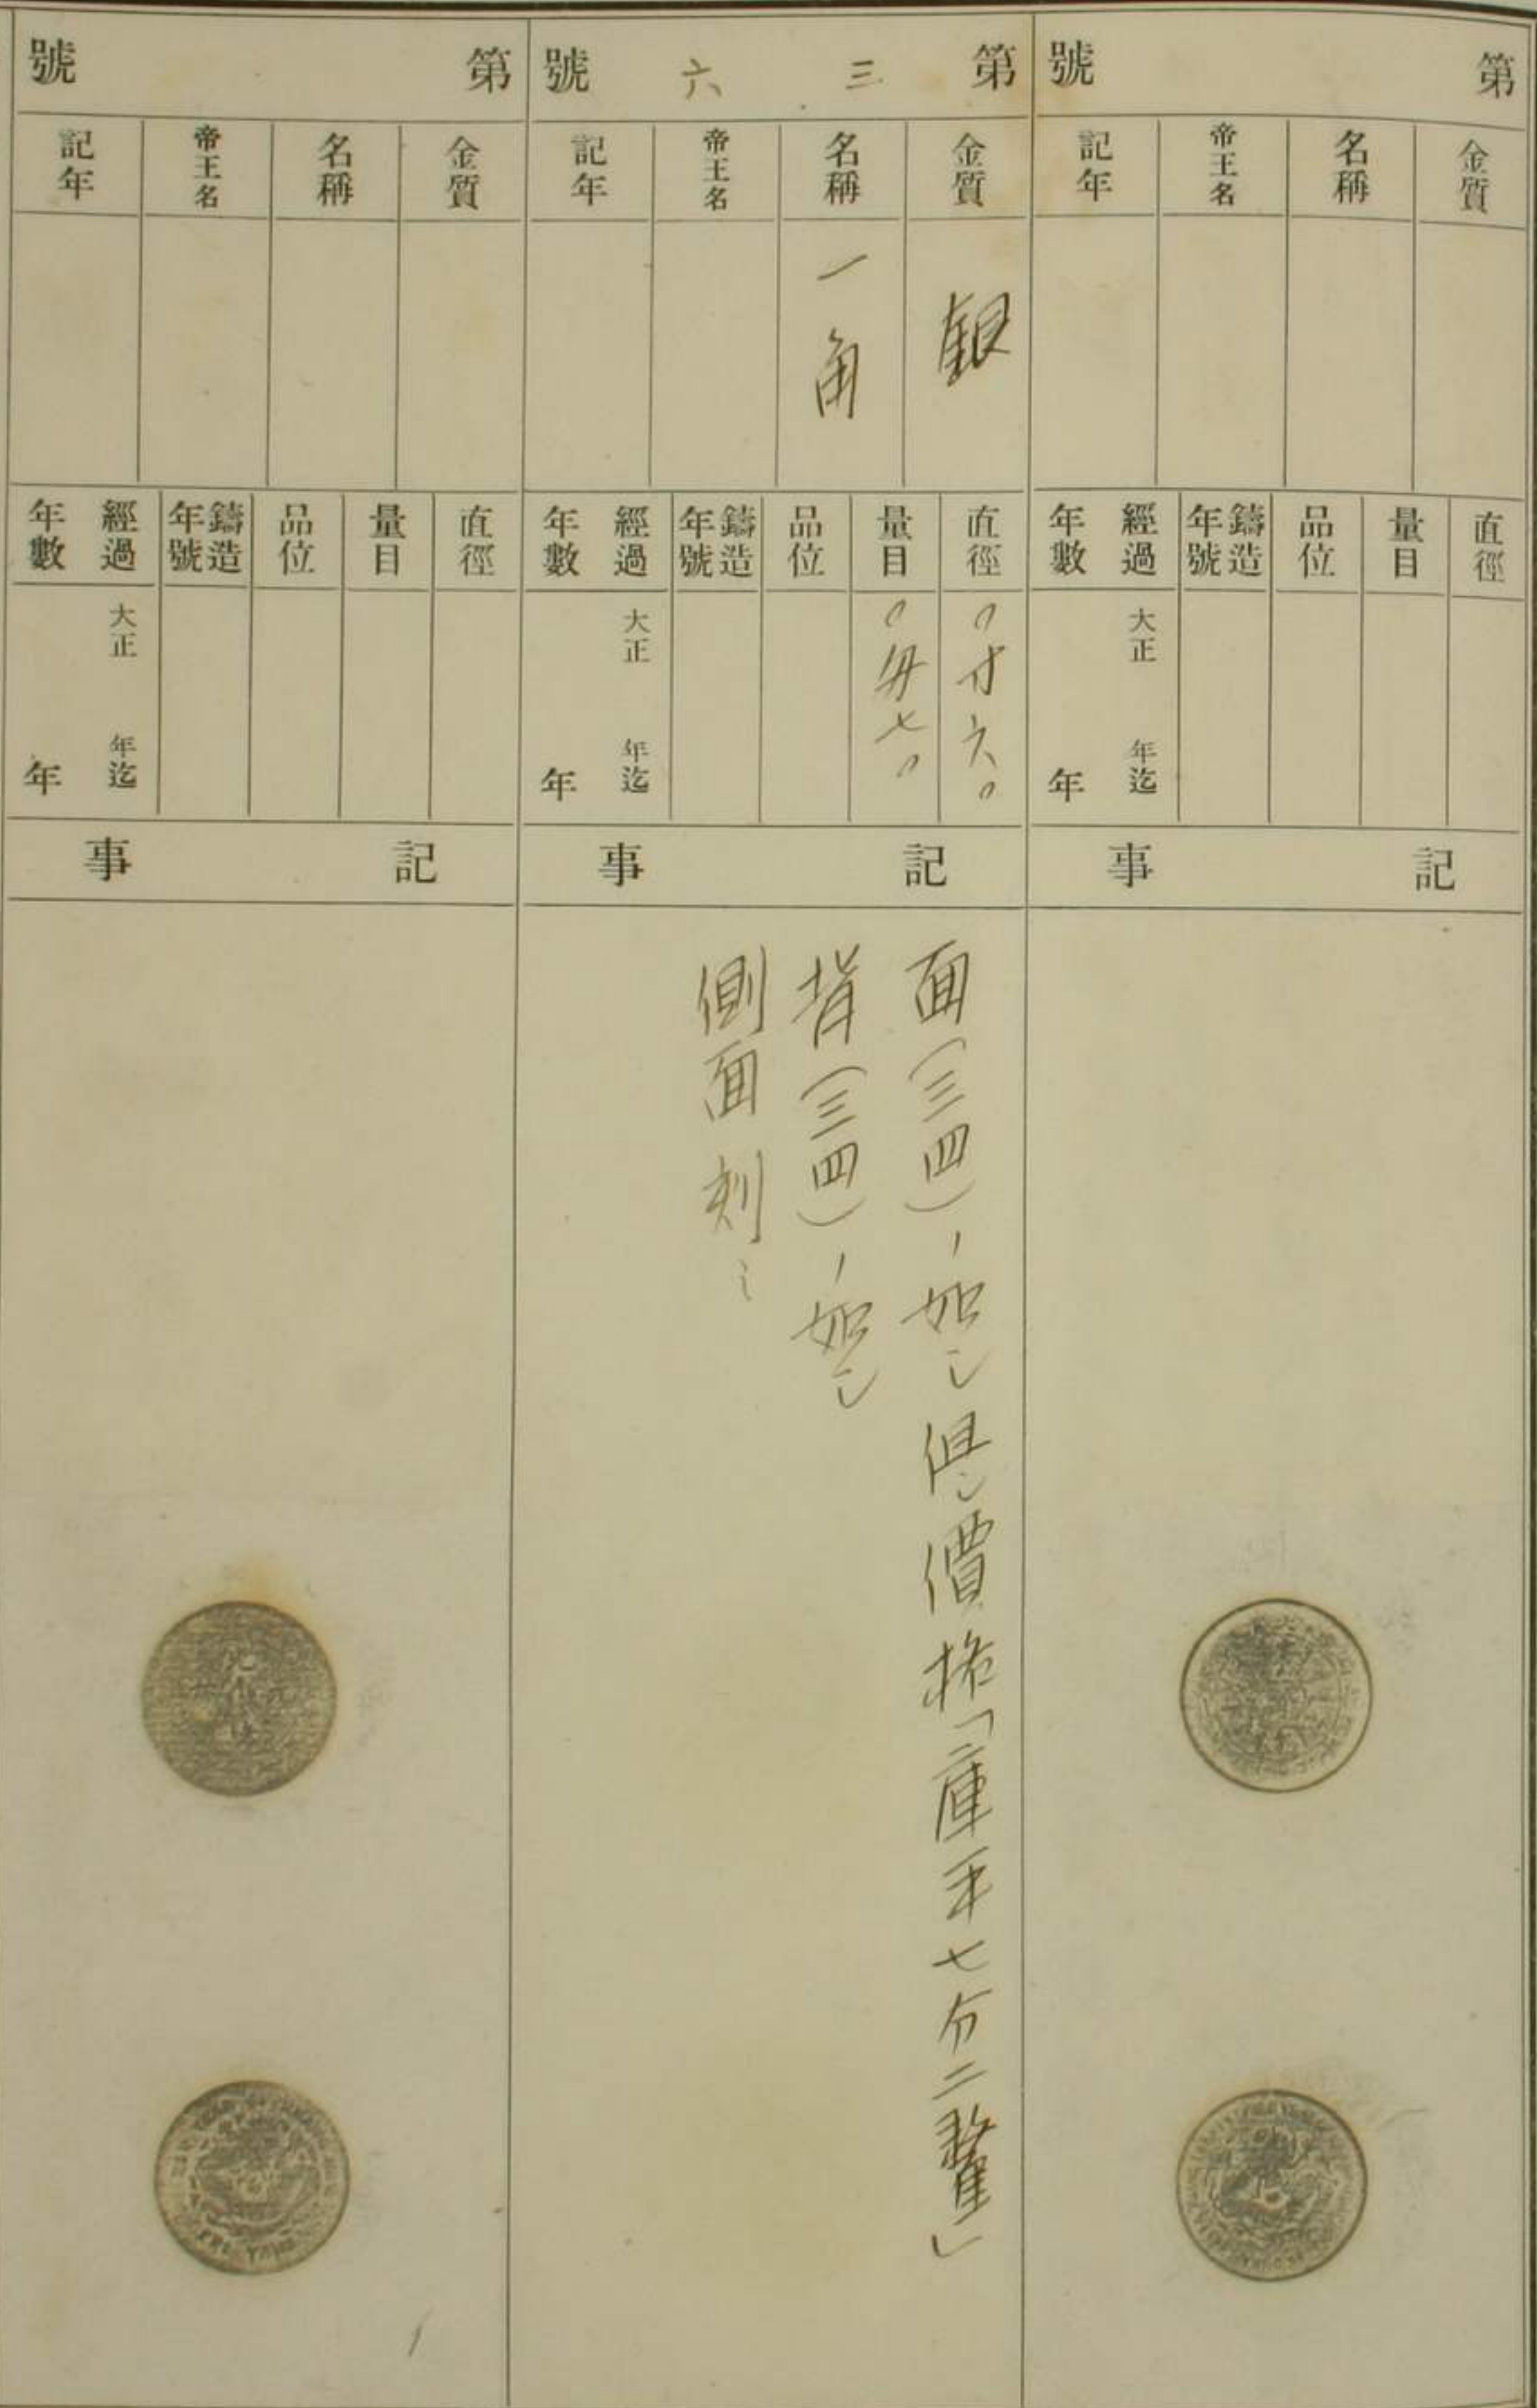 第 號
金質
名稱
帝王名
記年
直徑
量目
品位
鑄造年號
經過年數
大正 年迄
年
記事
第三六號
金質
銀
名稱
一角
帝王名
記年
直徑
〇寸六〇
量目
〇匁七〇
品位
鑄造年號
經過年數
大正 年迄
年
記事
面(三四)ノ如シ但シ價格「庫平七分二釐」
背(三四)ノ如シ
側面刻ミ
第 號
金質
名稱
帝王名
記年
直徑
量目
品位
鑄造年號
經過年數
大正 年迄
年
記事